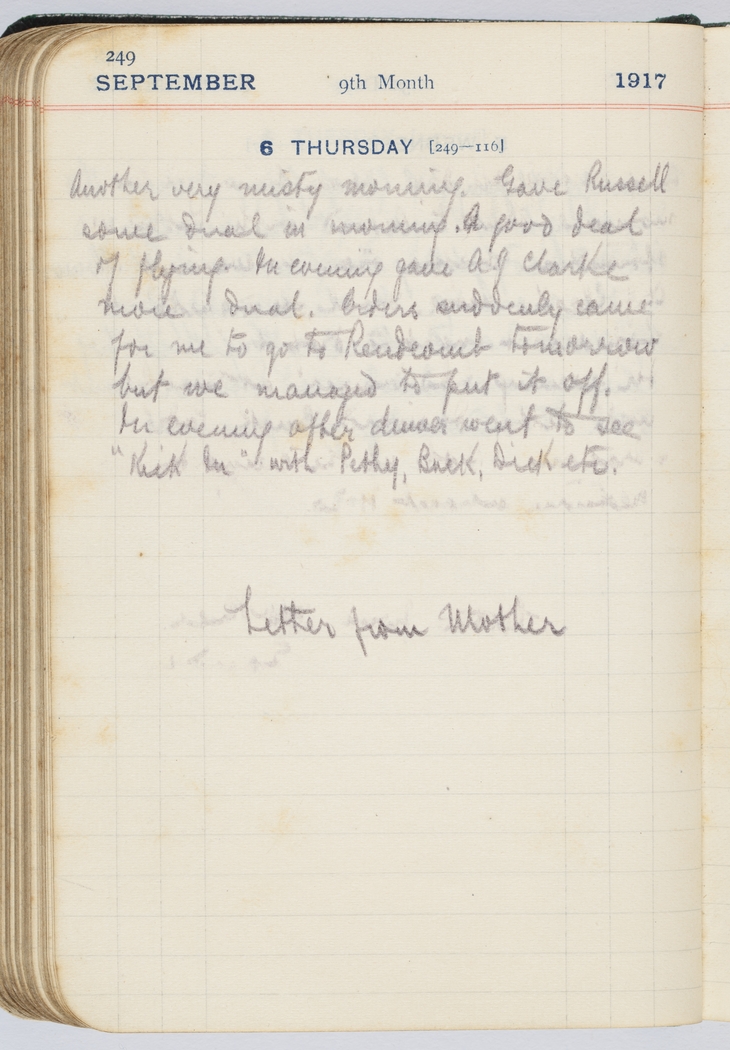 249
SEPTEMBER 9th Month 1917
6 THURSDAY [249—116]
Another very misty morning. Gave Russell
some dual in morning. A good deal
of flying. In evening gave A J Clarke
more dual. Orders suddenly came
for me to go to Rendcomb tomorrow
but we managed to put it off.
In evening after dinner went to see
"Kick In" with Pethy, Buck, Dick etc.
Letter from Mother